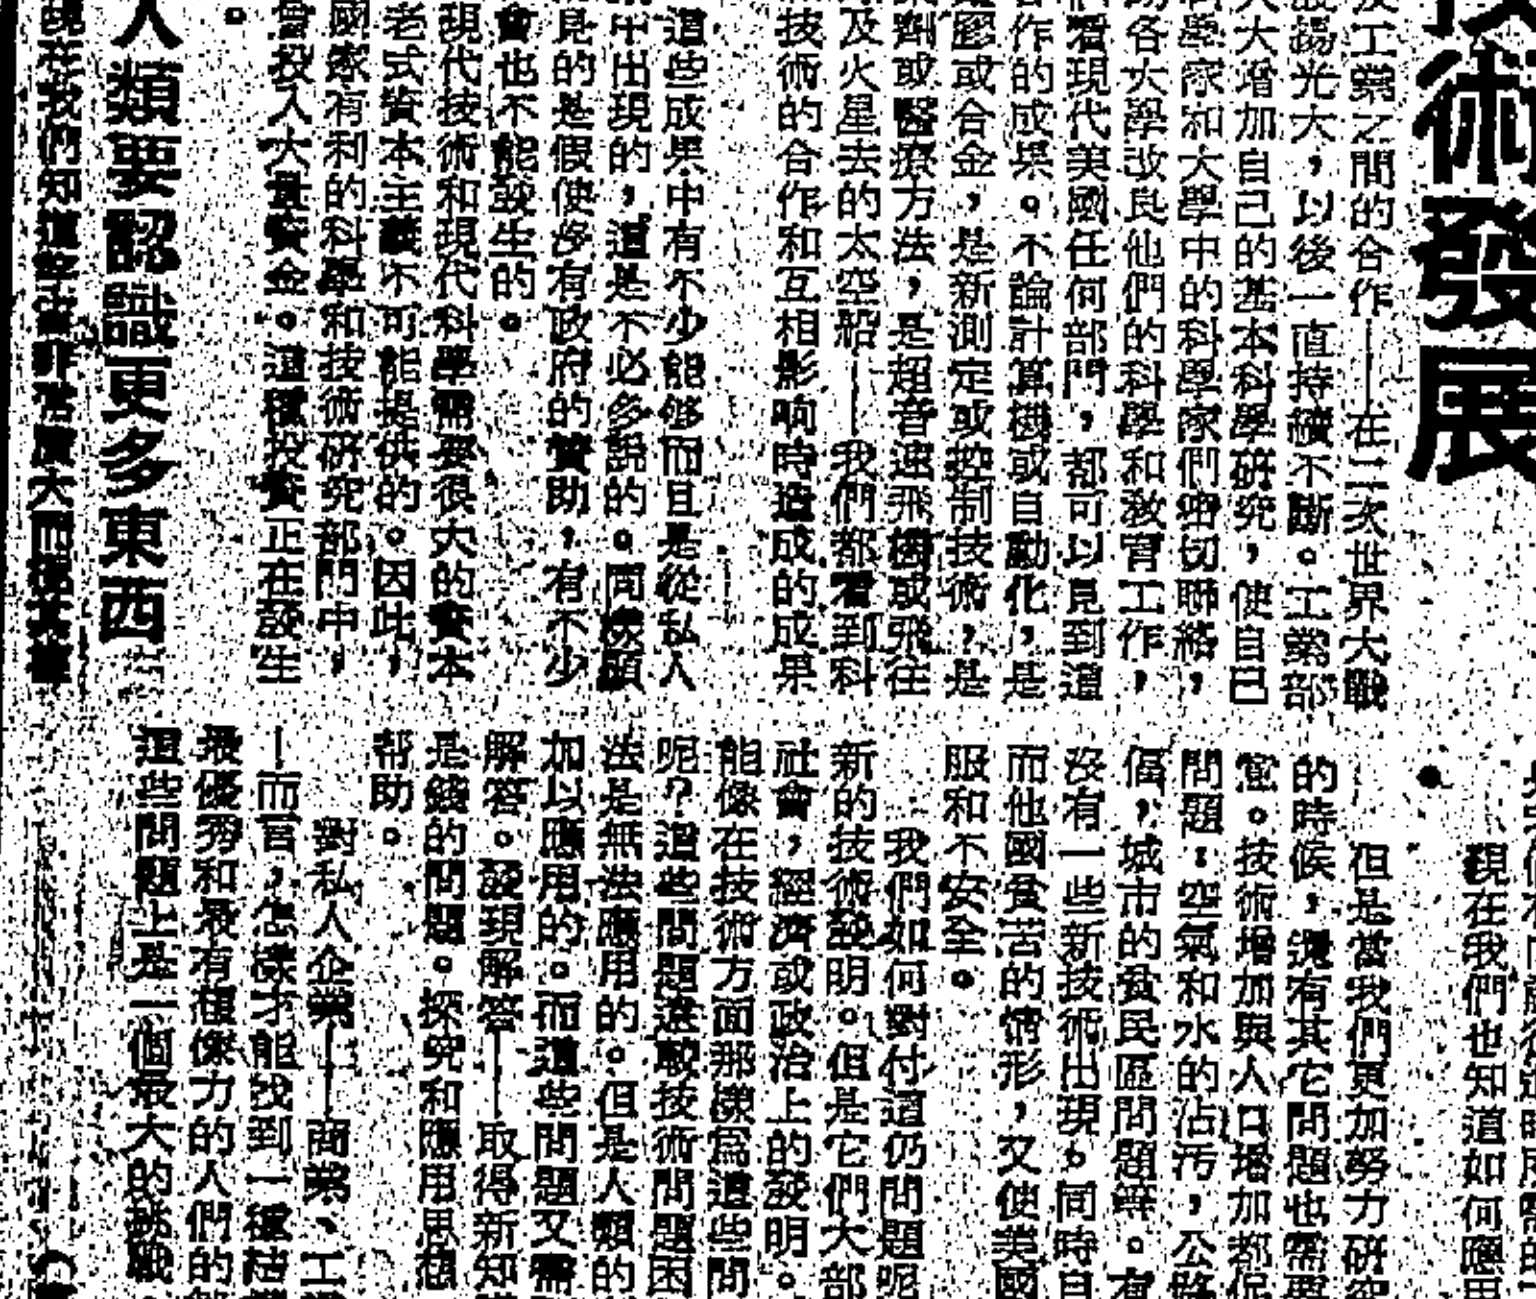 技術發展
工業之間的合作——在二次世界大戰
揚光大，以後一直持續不斷。工業部
大增加自己的基本科學研究，使自己
學家和大學中的科學家們密切聯絡，
各大學改良他們的科學和教育工作，
看現代美國任何部門，都可以見到這
作的成果。不論計算機或自動化，是
膠或合金，是新測定或控制技術，是
劑或醫療方法，是超音速飛機或飛往
及火星去的太空船——我們都看到科
技術的合作和互相影响時造成的成果
這些成果中有不少能够而且是從私人
中出現的，這是不必多說的。同樣顯
見的是假使沒有政府的贊助，有不少
會也不能發生的。
現代技術和現代科學需要很大的資本
老式資本主義不可能提供的。因此，
國家有利的科學和技術研究部門中，
會投入大量資金。這種投資正在發生
。
人類要認識更多東西
現在我們知道宇宙非常廣大而
現在我們也知道如何應用
但是當我們更加努力研究
的時候，還有其它問題也需要
。技術增加與人口增加都
問題：空氣和水的沾污，公路
，城市的貧民區問題等。有
沒有一些新技術出現，同時自
而他國貧苦的情形，又使美國
服和不安全。
我們如何對付這仍問題呢
新的技術發明。但是它們大部
社會，經濟或政治上的發明。
能像在技術方面那樣爲這些問
呢？這些問題遠較技術問題困
法是無法應用的。但是人類的
加以應用的。而這些問題又需
解答。發現解答——取得新知
是錢的問題。探究和應用思想
帮助。
對私人企業——商業、工
—而言，怎樣才能找到一種
最優秀和最有想像力的人們的
這些問題上是一個最大的挑戰